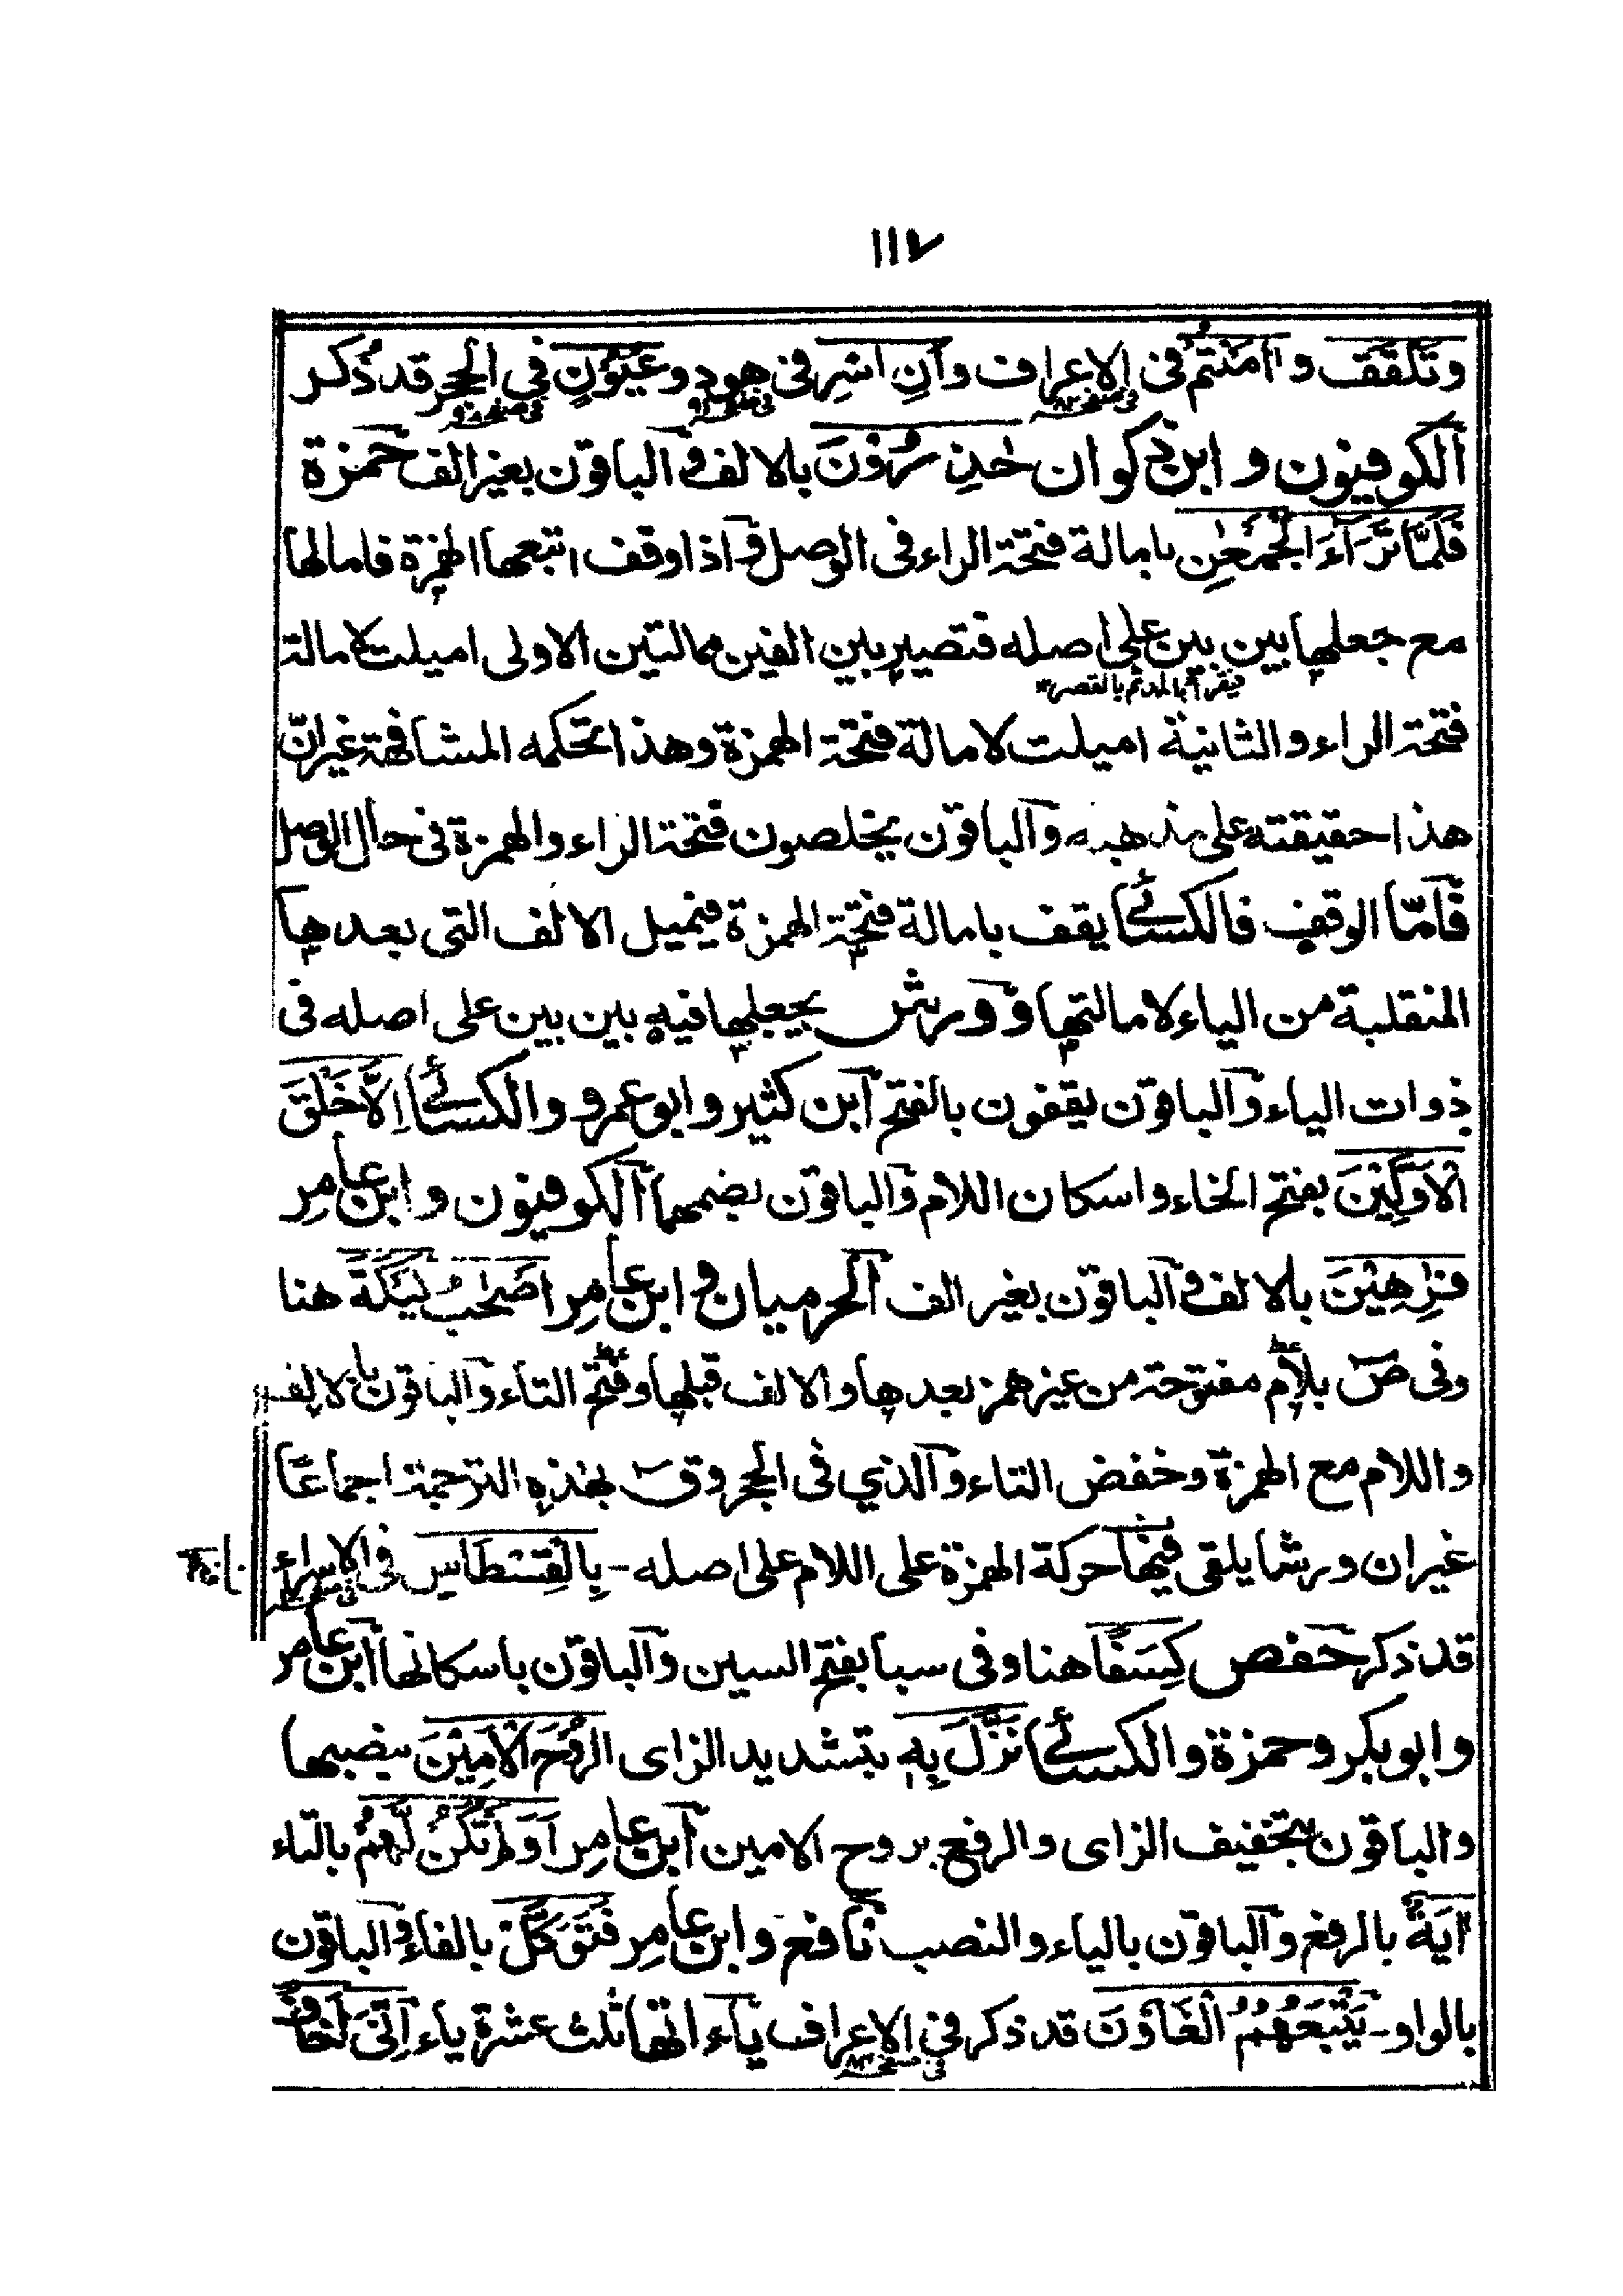 ١١٧
وتَلَقَّفُ وءامَنْتُمْ فى الاعراف وأَنِ اسْرِ فى هود وعُيُوْنٍ فى الحجر قد ذُكر
فى صفحه ٨٢
الكوفيون وابن ذكوان حٰذِرُوْنَ بالالف والباقون بغير الف حمزة
فَلَمَّا تَرَآءَ الْجَمْعٰنِ بامالة فتحة الراء فى الوصل وَاذا وقف اتبعها الهمزة فامالها
مع جعلها بين بين على اصله فتصير بين الفين ممالتين الاولى اميلت لامالة
فيقرأ بالمد ثم بالقصر ١٢
فتحة الراء والثانية اميلت لامالة فتحة الهمزة وهذا تحكمه المشافهة غير ان
هذا حقيقته على مذهبه والباقون يخلصون فتحة الراء والهمزة فى حال الوصل
فَامّا الوقف فالكسائے يقف بامالة فتحة الهمزة فيميل الالف التى بعدها
المنقلبة من الياء لامالتها وورش يجعلها فيه بين بين على اصله فى
ذوات الياء والباقون يقفون بالفتح ابن كثير وابو عمرو والكسائے اِلَّا خَلْقُ
الْاَوَّلِيْنَ بفتح الخاء واسكان اللام والباقون بضمهما الكوفيون وابن عامر
فٰرِهِيْنَ بالالف والباقون بغير الف الحرميان وابن عامر اَصْحٰبُ لَيْكَةَ هنا
وفى صٓ بلام مفتوحة من غير همز بعدها والالف قبلها وفتح التاء والباقون بالالف
واللام مع الهمزة وخفض التاء والذي فى الحجر وقٓ بهذه الترجمة اجماعًا
غير ان ورشا يلقى فيها حركة الهمزة على اللام على اصله - بِالْقِسْطَاسِ فى الاسراء
قد ذكر حفص كِسَفًا هنا وفى سبا بفتح السين والباقون باسكانها ابن عامر
وابوبكر وحمزة والكسائے نَزَّلَ بِهِ بتشديد الزاى الرُّوْحَ الْاَمِيْنَ بنصبهما
والباقون بتخفيف الزاى والرفع بروح الامين ابن عامر اَوَلَمْ تَكُنْ لَّهُمْ بالتاء
اٰيَةٌ بالرفع والباقون بالياء والنصب نافع وابن عامر فَتَوَكَّلْ بالفاء والباقون
بالواو - يَتَّبِعُهُمُ الْغَاوٗنَ قد ذكر فى الاعراف ياءاتها ثلث عشرة ياء اِنِّىَ اَخَافُ
فى صفحه ٨٣